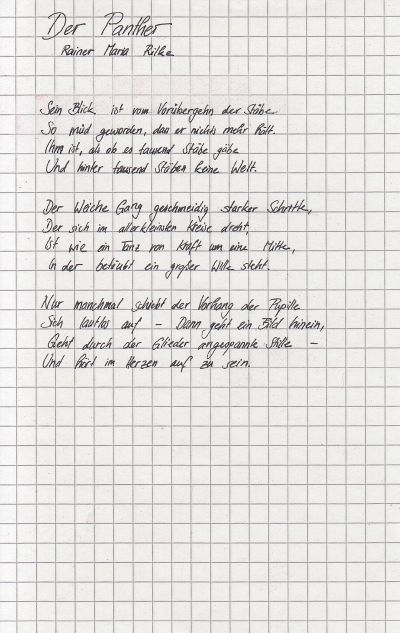 Der Panther
Rainer Maria Rilke
Sein Blick ist vom Vorübergehn der Stäbe
So müd geworden, dass er nichts mehr hält.
Ihm ist, als ob es tausend Stäbe gäbe
Und hinter tausend Stäben keine Welt.
Der Weiche Gang geschmeidig starker Schritte,
Der sich im allerkleinsten Kreise dreht,
Ist wie ein Tanz von Kraft um eine Mitte,
In der betäubt ein großer Wille steht.
Nur manchmal schiebt der Vorhang der Pupille
Sich lautlos auf – Dann geht ein Bild hinein,
Geht durch der Glieder angespannte Stille –
Und hört im Herzen auf zu sein.